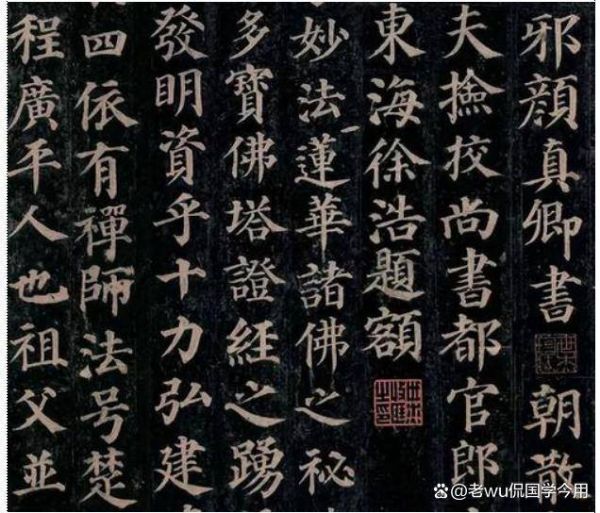 邪顔真卿書朝散
夫撿挍尚書都官郎
東海徐浩題額
妙法蓮華諸佛之祕
多寶佛塔證經之踴
發明資乎十力弘建
四依有禪師法号楚
程廣平人也祖父並
@老wu侃国学今用